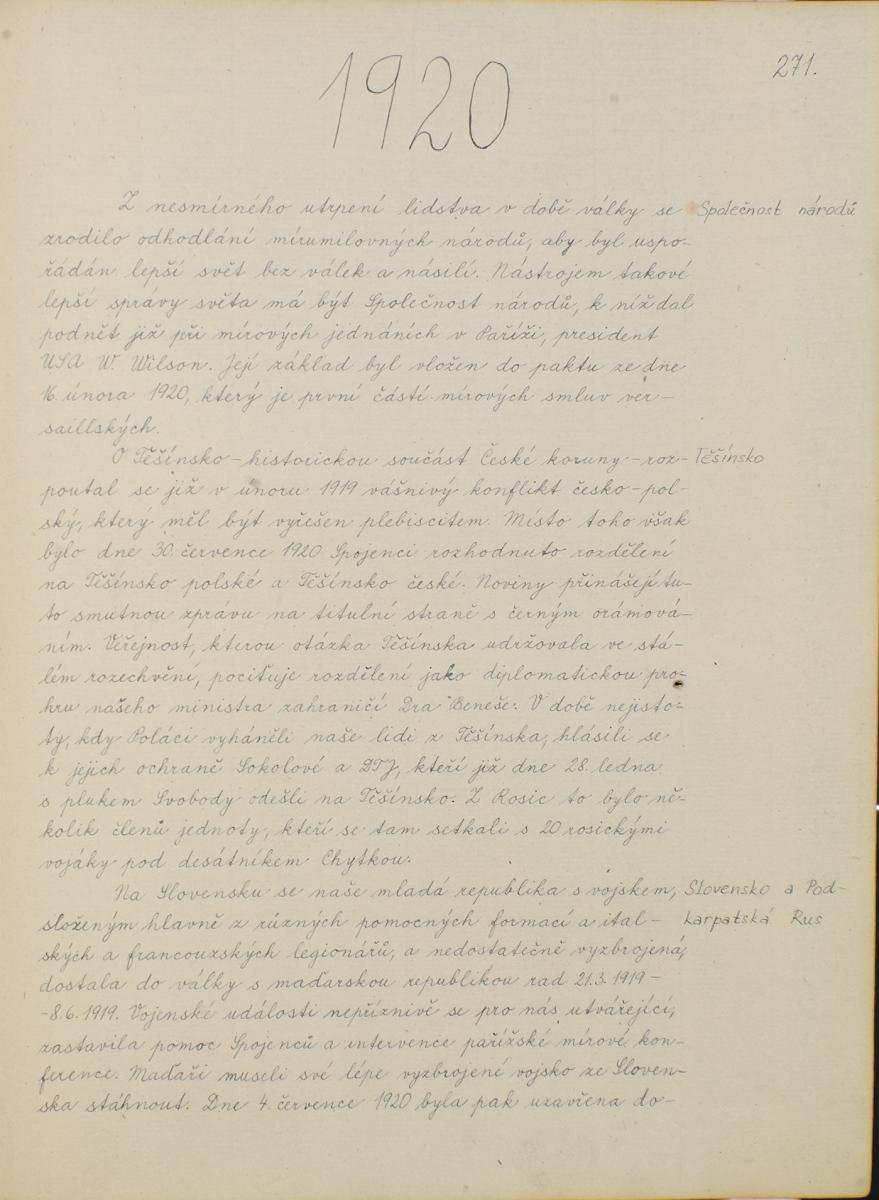 271.
1920
Z nesmírného utrpení lidstva v době války se Společnost národů
zrodilo odhodlání mírumilovných národů, aby byl uspo-
řádán lepší svět bez válek a násilí. Nástrojem takové
lepší správy světa má být Společnost národů, k níž dal
podnět již při mírových jednáních v Paříži, president
USA W. Wilson. Její základ byl vložen do paktu ze dne
16. února 1920, který je první částí mírových smluv ver-
saillských.
O Těšínsko - historickou součást České koruny - roz- Těšínsko
poutal se již v únoru 1919 vášnivý konflikt česko-pol-
ský, který měl být vyřešen plebiscitem. Místo toho však
bylo dne 30. července 1920 Spojenci rozhodnuto rozdělení
na Těšínsko polské a Těšínsko české. Noviny přinášejí tu-
to smutnou zprávu na titulní straně s černým orámová-
ním. Veřejnost, kterou otázka Těšínska udržovala ve stá-
lém rozechvění, pociťuje rozdělení jako diplomatickou pro-
hru našeho ministra zahraničí Dra Beneše. V době nejisto-
ty, kdy Poláci vyháněli naše lidi z Těšínska, hlásili se
k jejich ochraně Sokolové a DTJ, kteří již dne 28. ledna
s plukem Svobody odešli na Těšínsko. Z Rosic to bylo ně-
kolik členů jednoty, kteří se tam setkali s 20 rosickými
vojáky pod desátníkem Chytkou.
Na Slovensku se naše mladá republika s vojskem, Slovensko a Pod-
složeným hlavně z různých pomocných formací a ital- karpatská Rus
ských a francouzských legionářů, a nedostatečně vyzbrojená,
dostala do války s maďarskou republikou rad 21.3.1919 -
- 8.6.1919. Vojenské události nepříznivě se pro nás utvářející,
zastavila pomoc Spojenců a intervence pařížské mírové kon-
ference. Maďaři museli své lépe vyzbrojené vojsko ze Sloven-
ska stáhnout. Dne 4. července 1920 byla pak uzavřena do-